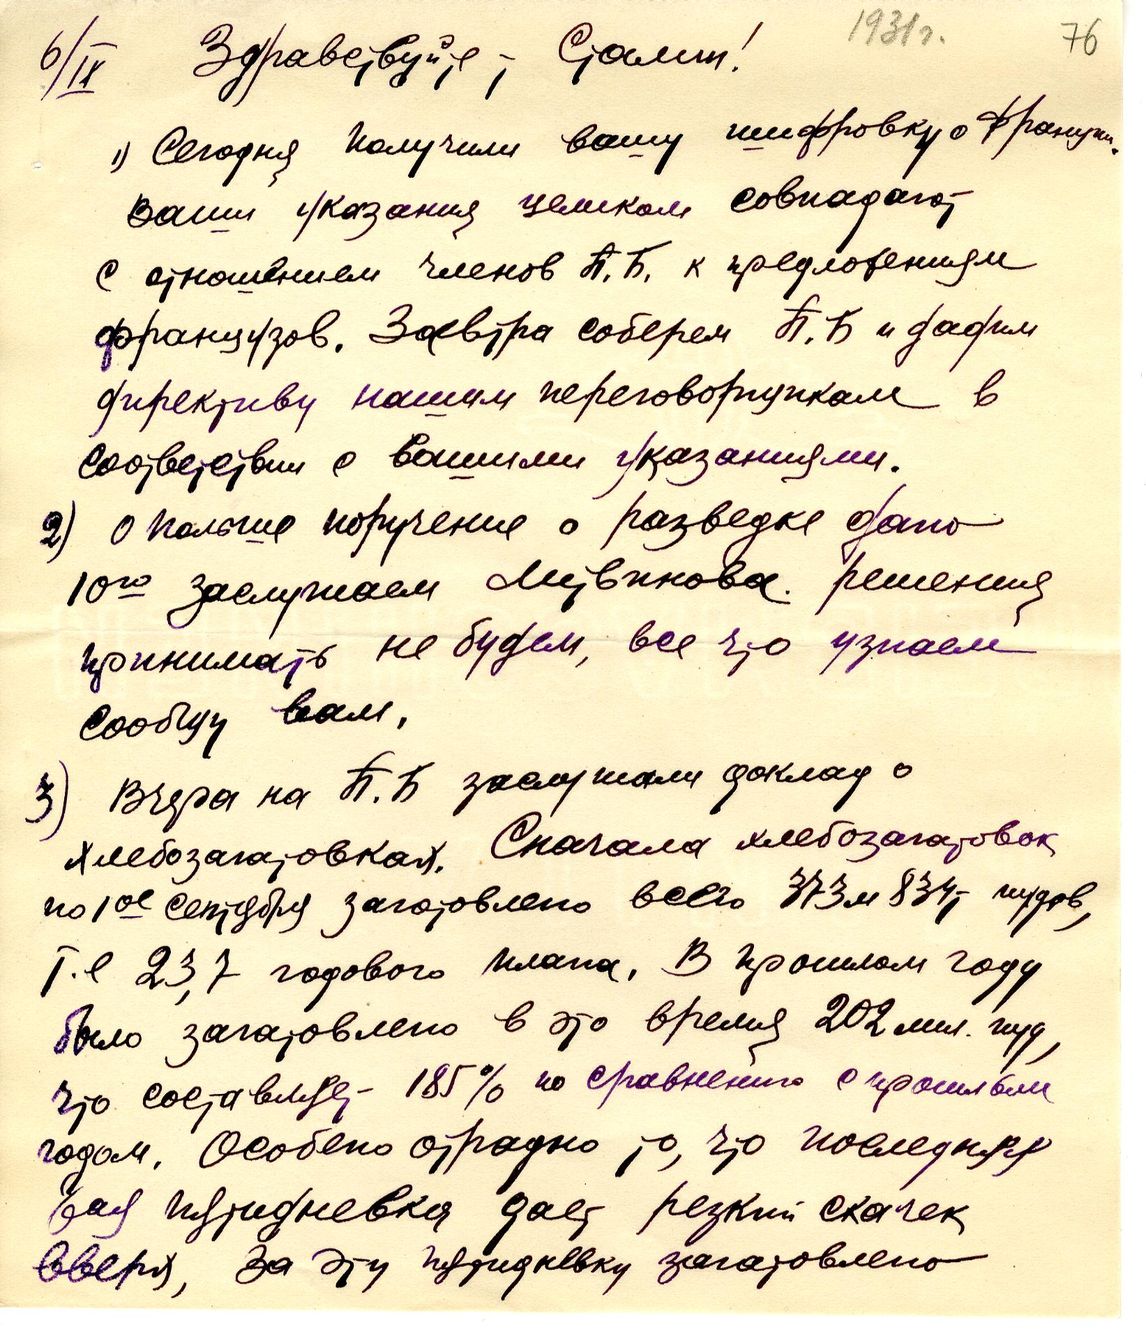 1931 г. 76
6/IX Здравствуйте, Сталин!
1) Сегодня получили вашу шифровку о Франции.
Ваши указания целиком совпадают
с отношением членов П.Б. к предложениям
французов. Завтра соберем П.Б и дадим
директиву нашим переговорщикам в
соответствии с вашими указаниями.
2) О Польше поручение о разведке дано
10го заслушаем Литвинова. решения
принимать не будем, все что узнаем
сообщу вам.
3) Вчера на П.Б заслушали доклад о
хлебозаготовках. Сначала хлебозаготовок
по 1ое сентября заготовлено всего 373 м 834 т пудов,
т.е 23,7 годового плана. В прошлом году
было заготовлено в это время 202 мил. пуд,
что составляет 185% по сравнению с прошлым
годом. Особено отрадно то, что последняя
5ая пятидневка дает резкий скачек
вверх, За эту пятидневку заготовлено